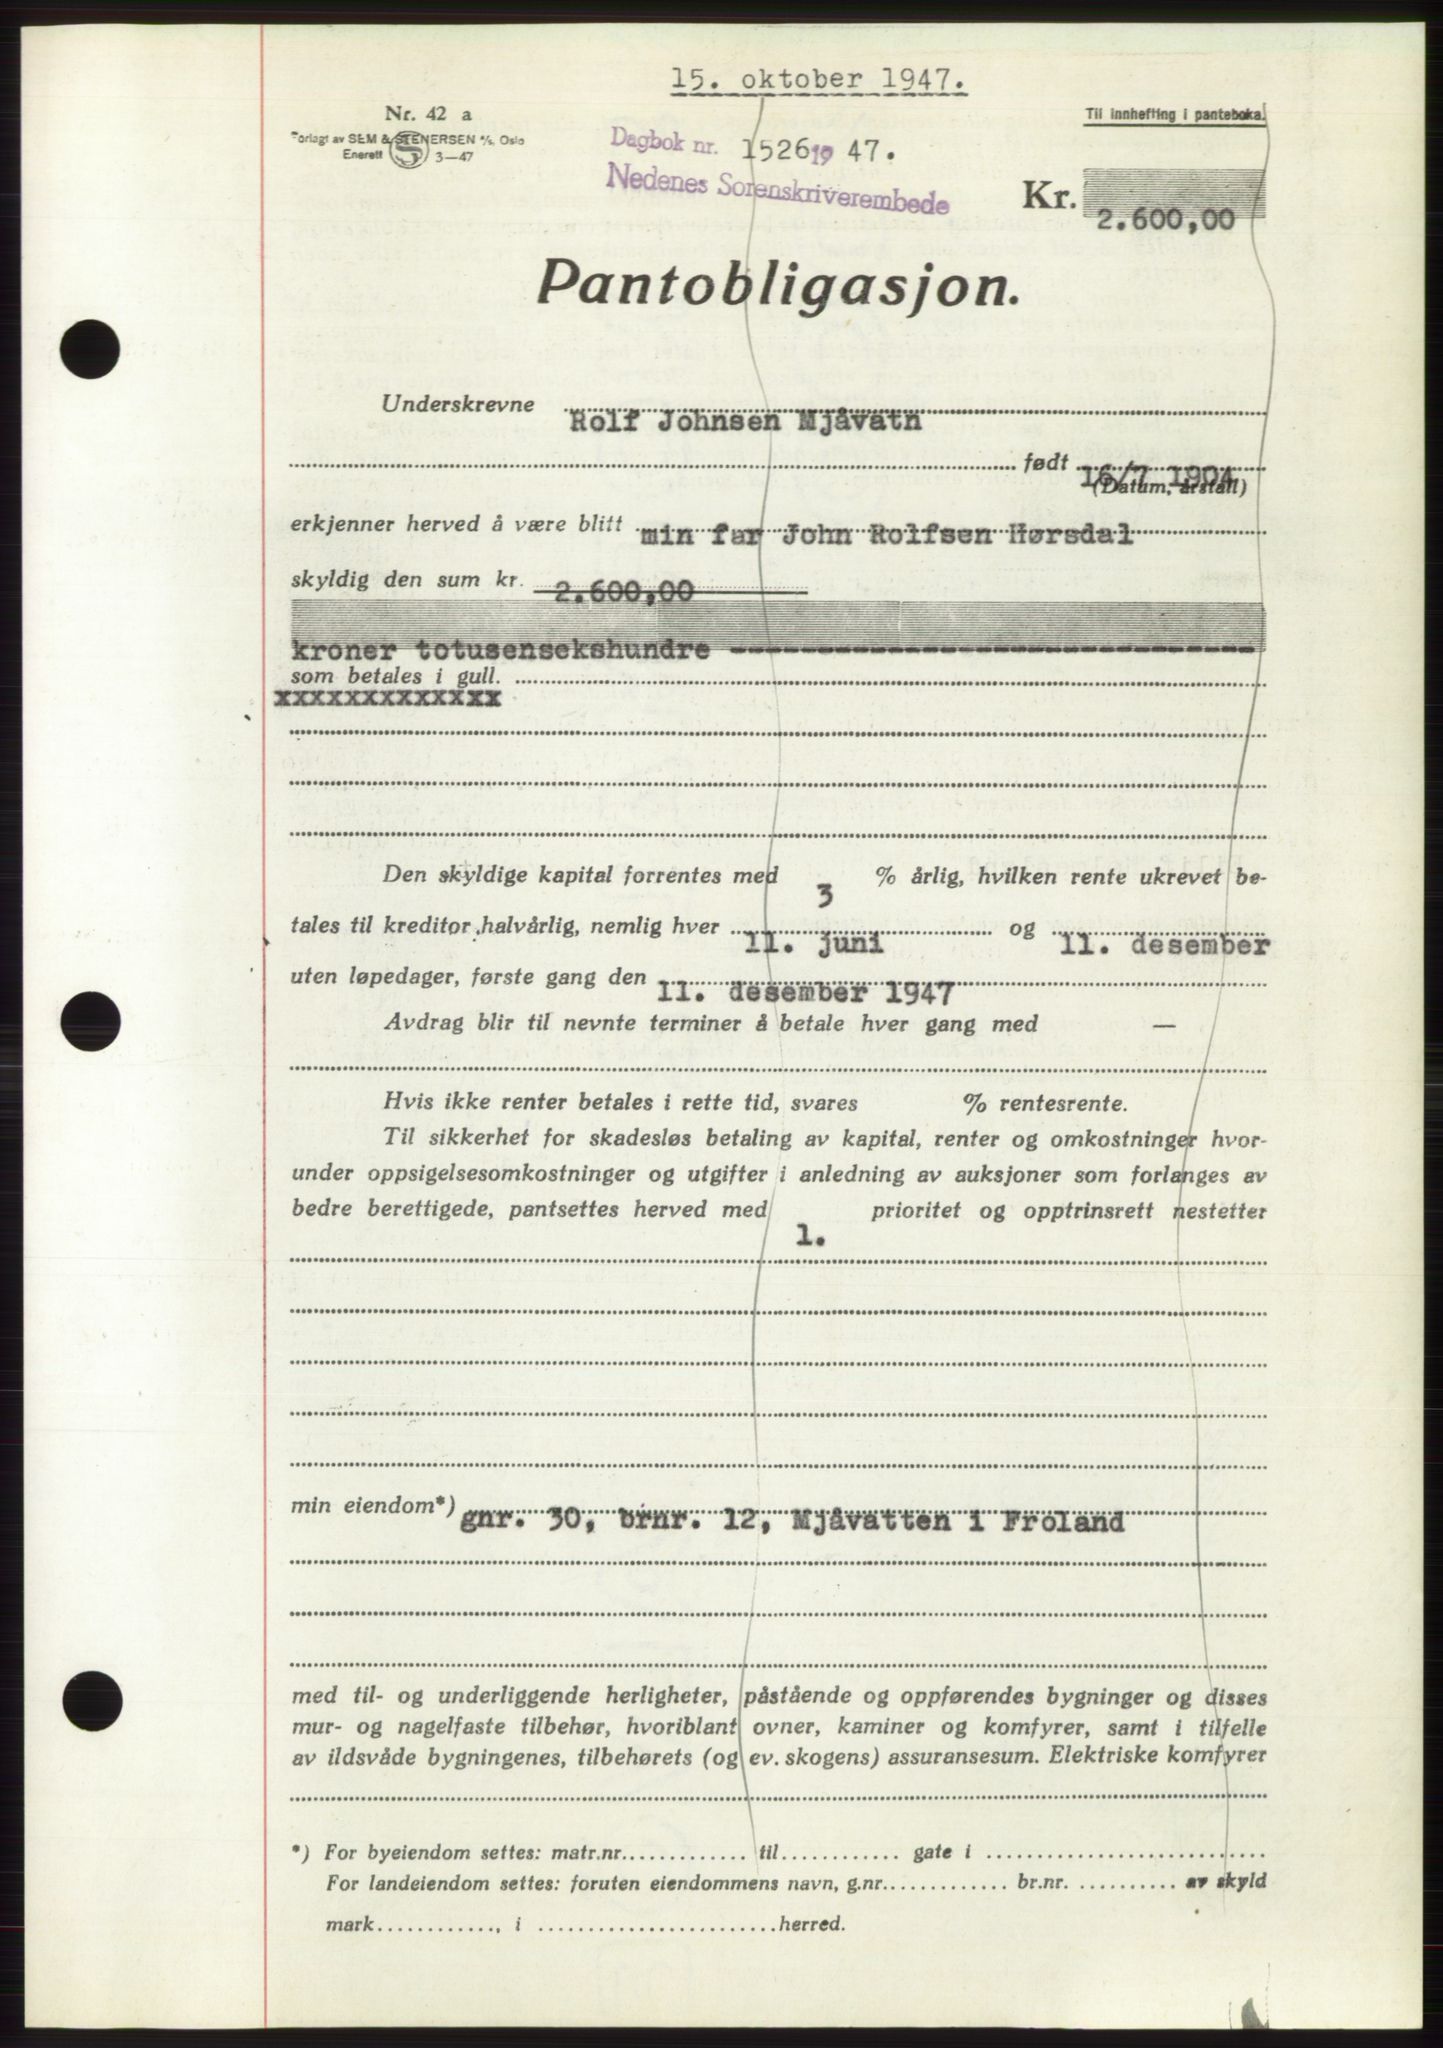 15. oktober 1947.
Nr. 42 a
Forlagt av SEM & STENERSEN A/S, Oslo
Enerett 3—47
Til innhefting i panteboka.
Dagbok nr. 1526 19 47.
Nedenes Sorenskriverembede
Kr. 2.600,00
Pantobligasjon.
Underskrevne Rolf Johnsen Mjåvatn
født 16/7 1904
(Datum, årstall)
erkjenner herved å være blitt min far John Rolfsen Hørsdal
skyldig den sum kr. 2.600,00
kroner totusensekshundre ------------------------------
som betales i gull.
xxxxxxxxxxxxx
Den skyldige kapital forrentes med 3 % årlig, hvilken rente ukrevet be-
tales til kreditor halvårlig, nemlig hver 11. juni og 11. desember
uten løpedager, første gang den 11. desember 1947
Avdrag blir til nevnte terminer å betale hver gang med —
Hvis ikke renter betales i rette tid, svares % rentesrente.
Til sikkerhet for skadesløs betaling av kapital, renter og omkostninger hvor-
under oppsigelsesomkostninger og utgifter i anledning av auksjoner som forlanges av
bedre berettigede, pantsettes herved med 1. prioritet og opptrinsrett nestetter
min eiendom*) gnr. 30, brnr. 12, Mjåvatten i Froland
med til- og underliggende herligheter, påstående og oppførendes bygninger og disses
mur- og nagelfaste tilbehør, hvoriblant ovner, kaminer og komfyrer, samt i tilfelle
av ildsvåde bygningenes, tilbehørets (og ev. skogens) assuransesum. Elektriske komfyrer
*) For byeiendom settes: matr.nr............. til............ gate i ..........................
For landeiendom settes: foruten eiendommens navn, g.nr............. br.nr. .......... av skyld
mark............, i ........................herred.